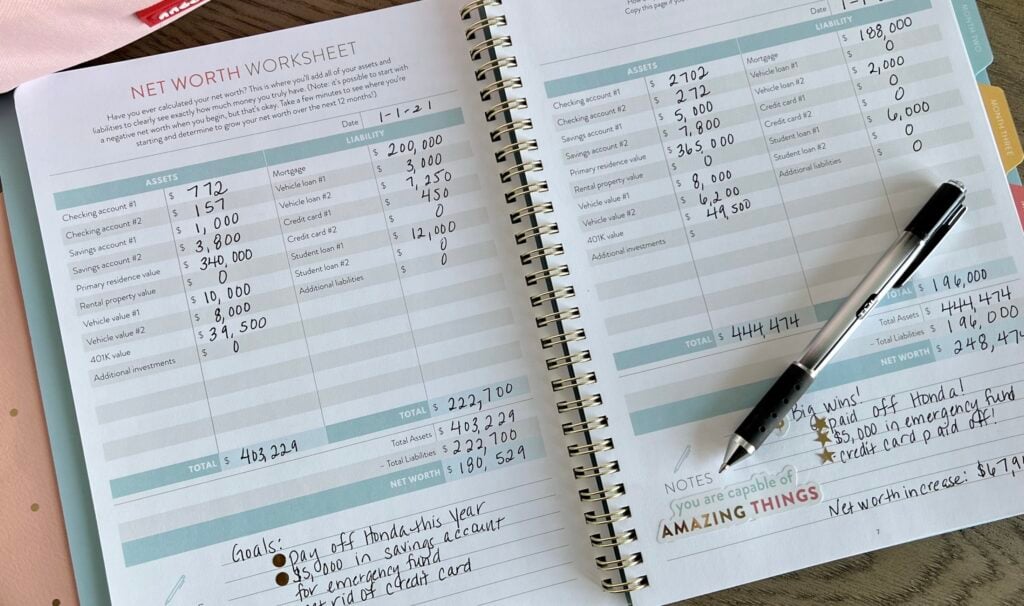 NET WORTH WORKSHEET
Have you ever calculated your net worth? This is where you'll add all of your assets and
liabilities to clearly see exactly how much money you truly have. (Note: it's possible to start with
a negative net worth when you begin, but that's okay. Take a few minutes to see where you're
starting and determine to grow your net worth over the next 12 months!)
Date 1-1-21
ASSETS LIABILITY
Checking account #1 $ 772 Mortgage $ 200,000
Checking account #2 $ 157 Vehicle loan #1 $ 3,000
Savings account #1 $ 1,000 Vehicle loan #2 $ 7,250
Savings account #2 $ 3,800 Credit card #1 $ 450
Primary residence value $ 340,000 Credit card #2 $ 0
Rental property value $ 0 Student loan #1 $ 12,000
Vehicle value #1 $ 10,000 Student loan #2 $ 0
Vehicle value #2 $ 8,000 Additional liabilities $ 0
401K value $ 39,500
Additional investments $ 0
TOTAL $ 403,229 TOTAL $ 222,700
Total Assets $ 403,229
– Total Liabilities $ 222,700
NET WORTH $ 180,529
Goals:
pay off Honda this year
$5,000 in savings account
for emergency fund
rid of credit card
Copy this page if
Date
ASSETS LIABILITY
Checking account #1 $ 2702 Mortgage $ 188,000
Checking account #2 $ 272 Vehicle loan #1 $ 0
Savings account #1 $ 5,000 Vehicle loan #2 $ 2,000
Savings account #2 $ 7,800 Credit card #1 $ 0
Primary residence value $ 365,000 Credit card #2 $
Rental property value $ 0 Student loan #1 $ 6,000
Vehicle value #1 $ 8,000 Student loan #2 $ 0
Vehicle value #2 $ 6,200 Additional liabilities $ 0
401K value $ 49,500
Additional investments $
TOTAL $ 444,474 TOTAL $ 196,000
Total Assets $ 444,474
– Total Liabilities $ 196,000
NET WORTH $ 248,47
NOTES
Big wins!
paid off Honda!
$5,000 in emergency fund
credit card paid off!
you are capable of
AMAZING THINGS
Net worth increase: $67,9
7
MONTH TWO
MONTH THREE